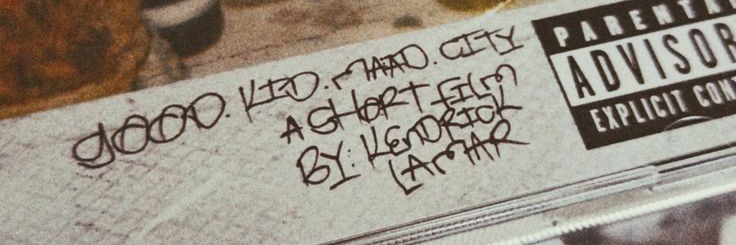 gOOD. KID. MAAD. CITY
A SHORT FILM
BY: KENDRICK
LAMAR
PARENTA
ADVISOR
EXPLICIT CONT